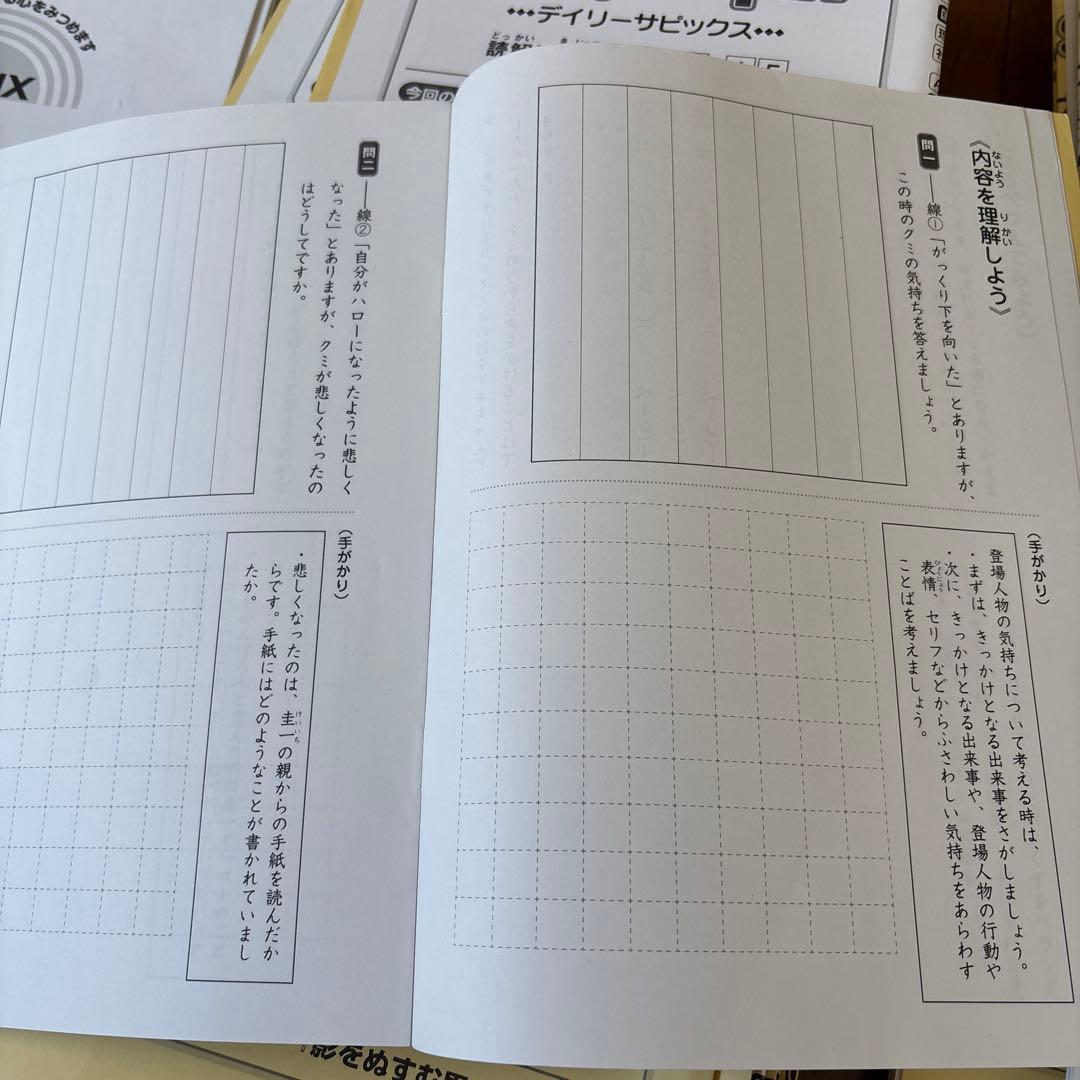 心をみつめます
デイリーサピックス
どっかい
読解
今回の
ないよう りかい
《内容を理解しよう》
問一 ――線①「がっくり下を向いた」とありますが、
この時のクミの気持ちを答えましょう。
(手がかり)
登場人物の気持ちについて考える時は、
・まずは、きっかけとなる出来事をさがしましょう。
・次に、きっかけとなる出来事や、登場人物の行動や
ひょうじょう
表情、セリフなどからふさわしい気持ちをあらわす
ことばを考えましょう。
問二 ――線②「自分がハローになったように悲しく
なった」とありますが、クミが悲しくなったの
はどうしてですか。
(手がかり)
けいいち
・悲しくなったのは、圭一の親からの手紙を読んだか
らです。手紙にはどのようなことが書かれていまし
たか。
影をぬすむ男